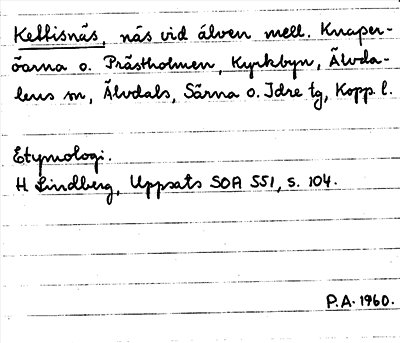 Kellisnäs, näs vid älven mell. Knaper-
öarna o. Prästholmen, Kyrkbyn, Älvda-
lens sn, Älvdals, Särna o. Idre tg, Kopp. l.
Etymologi.
H Lindberg, Uppsats SOA 551, s. 104.
P.A. 1960.